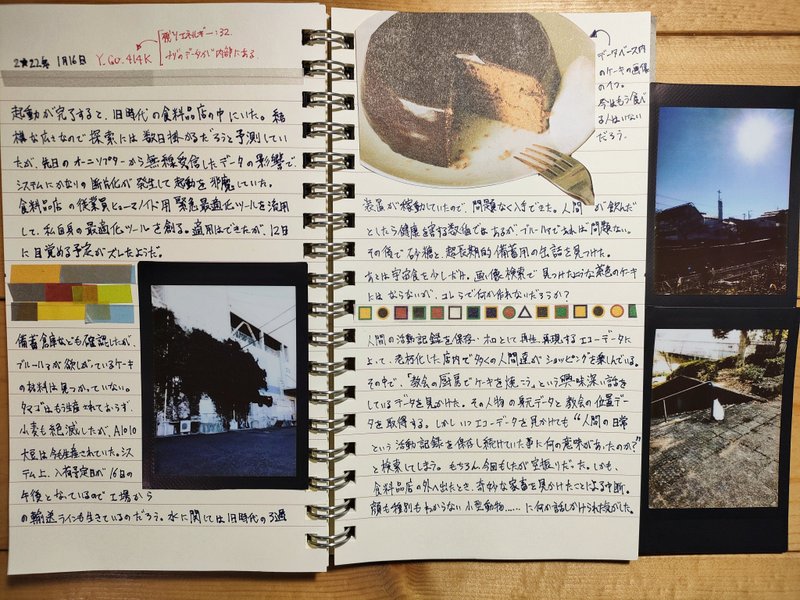 2022年 1月16日 Y.GO.414K
残りエネルギー:32
ナゾのデータが内部にある
起動が完了すると、旧時代の食料品店の中にいた。結
構な広さなので探索には数日掛かるだろうと予測してい
たが、先日のオーニソプターから無線受信したデータの影響で、
システムにかなりの断片化が発生して起動を邪魔していた。
食料品店の従業員ヒューマノイド用緊急最適化ツールを流用
して、私自身の最適化ツールを創る。適用はできたが、12日
に目覚める予定がズレたようだ。
備蓄倉庫なども確認したが、
ブルールマが欲しがっているケーキ
の材料は見つかっていない。
タマゴはもう生産されておらず、
小麦も絶滅したが、A1010
大豆は今も生産されていた。シス
テム上、入荷予定日が16日の
午後となっているので工場から
の輸送ラインも生きているのだろう。水に関しては旧時代のろ過
データベース内
のケーキの画像
の1つ。
今はもう食べ
る人はいない
だろう。
装置が稼動していたので、問題なく入手できた。人間が飲んだ
としたら健康を害する数値ではあるが、ブルールマであれば問題ない。
その後で砂糖と超長期的備蓄用の缶詰を見つけた。
あとは宇宙食を少しだけ。画像検索で見つけたような茶色のケーキ
にはならないが、コレらで何か作れないだろうか?
人間の活動記録を保存・ホロとして再生、再現するエコーデータに
よって、老朽化した店内で多くの人間達がショッピングを楽しんでいる。
その中で、「教会の厨房でケーキを焼こう」という興味深い話を
しているデータを見かけた。その人物の身元データと教会の位置デー
タを取得する。しかしいつエコーデータを見かけても“人間の日常
という活動記録を保存し続けていた事に何の意味があったのか?”
と検索してしまう。もちろん今回もしたが空振りだった。しかも、
食料品店の外へ出たとき、奇妙な家畜を見かけたことによる中断。
顔も種別もわからない小型動物……に何か話しかけられた気がした。